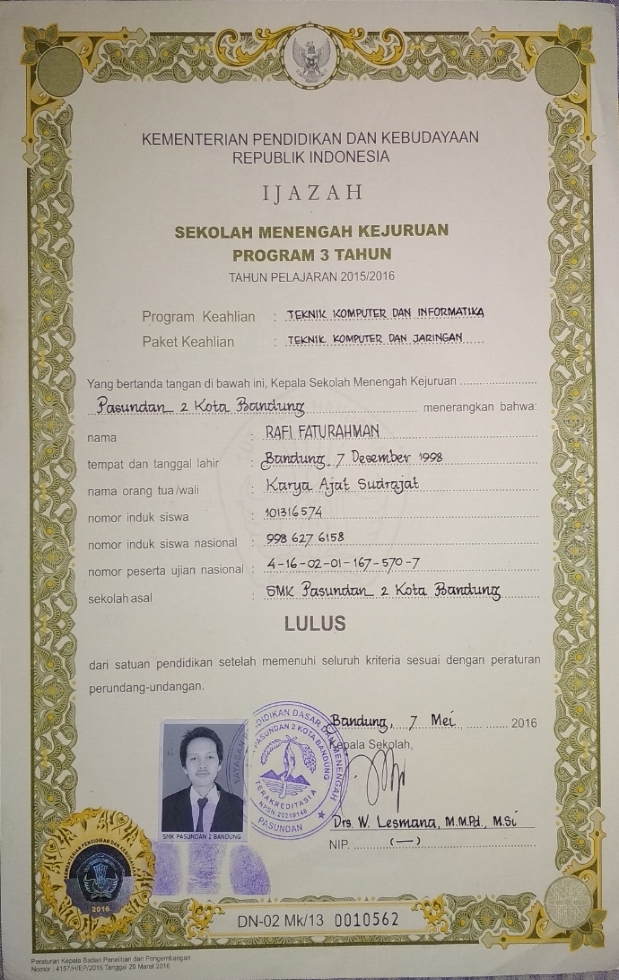 KEMENTERIAN PENDIDIKAN DAN KEBUDAYAAN
REPUBLIK INDONESIA
IJAZAH
SEKOLAH MENENGAH KEJURUAN
PROGRAM 3 TAHUN
TAHUN PELAJARAN 2015/2016
Program Keahlian : TEKNIK KOMPUTER DAN INFORMATIKA
Paket Keahlian : TEKNIK KOMPUTER DAN JARINGAN
Yang bertanda tangan di bawah ini, Kepala Sekolah Menengah Kejuruan
Pasundan 2 Kota Bandung menerangkan bahwa:
nama : RAFI FATURAHMAN
tempat dan tanggal lahir : Bandung, 7 Desember 1998
nama orang tua/wali : Karya Ajat Sudrajat
nomor induk siswa : 101316574
nomor induk siswa nasional : 998 627 6158
nomor peserta ujian nasional : 4-16-02-01-167-570-7
sekolah asal : SMK Pasundan 2 Kota Bandung
LULUS
dari satuan pendidikan setelah memenuhi seluruh kriteria sesuai dengan peraturan
perundang-undangan.
Bandung, 7 Mei 2016
Kepala Sekolah,
YAYASAN PENDIDIKAN DASAR DAN MENENGAH
PASUNDAN 2 KOTA BANDUNG
TERAKREDITASI A
PASUNDAN
SMK PASUNDAN 2 BANDUNG
Drs. W. Lesmana, M.M.Pd., M.Si
NIP. (—)
2016
DN-02 Mk/13 0010562
Peraturan Kepala Badan Penelitian dan Pengembangan
Nomor : 4157/H/EP/2016 Tanggal 26 Maret 2016